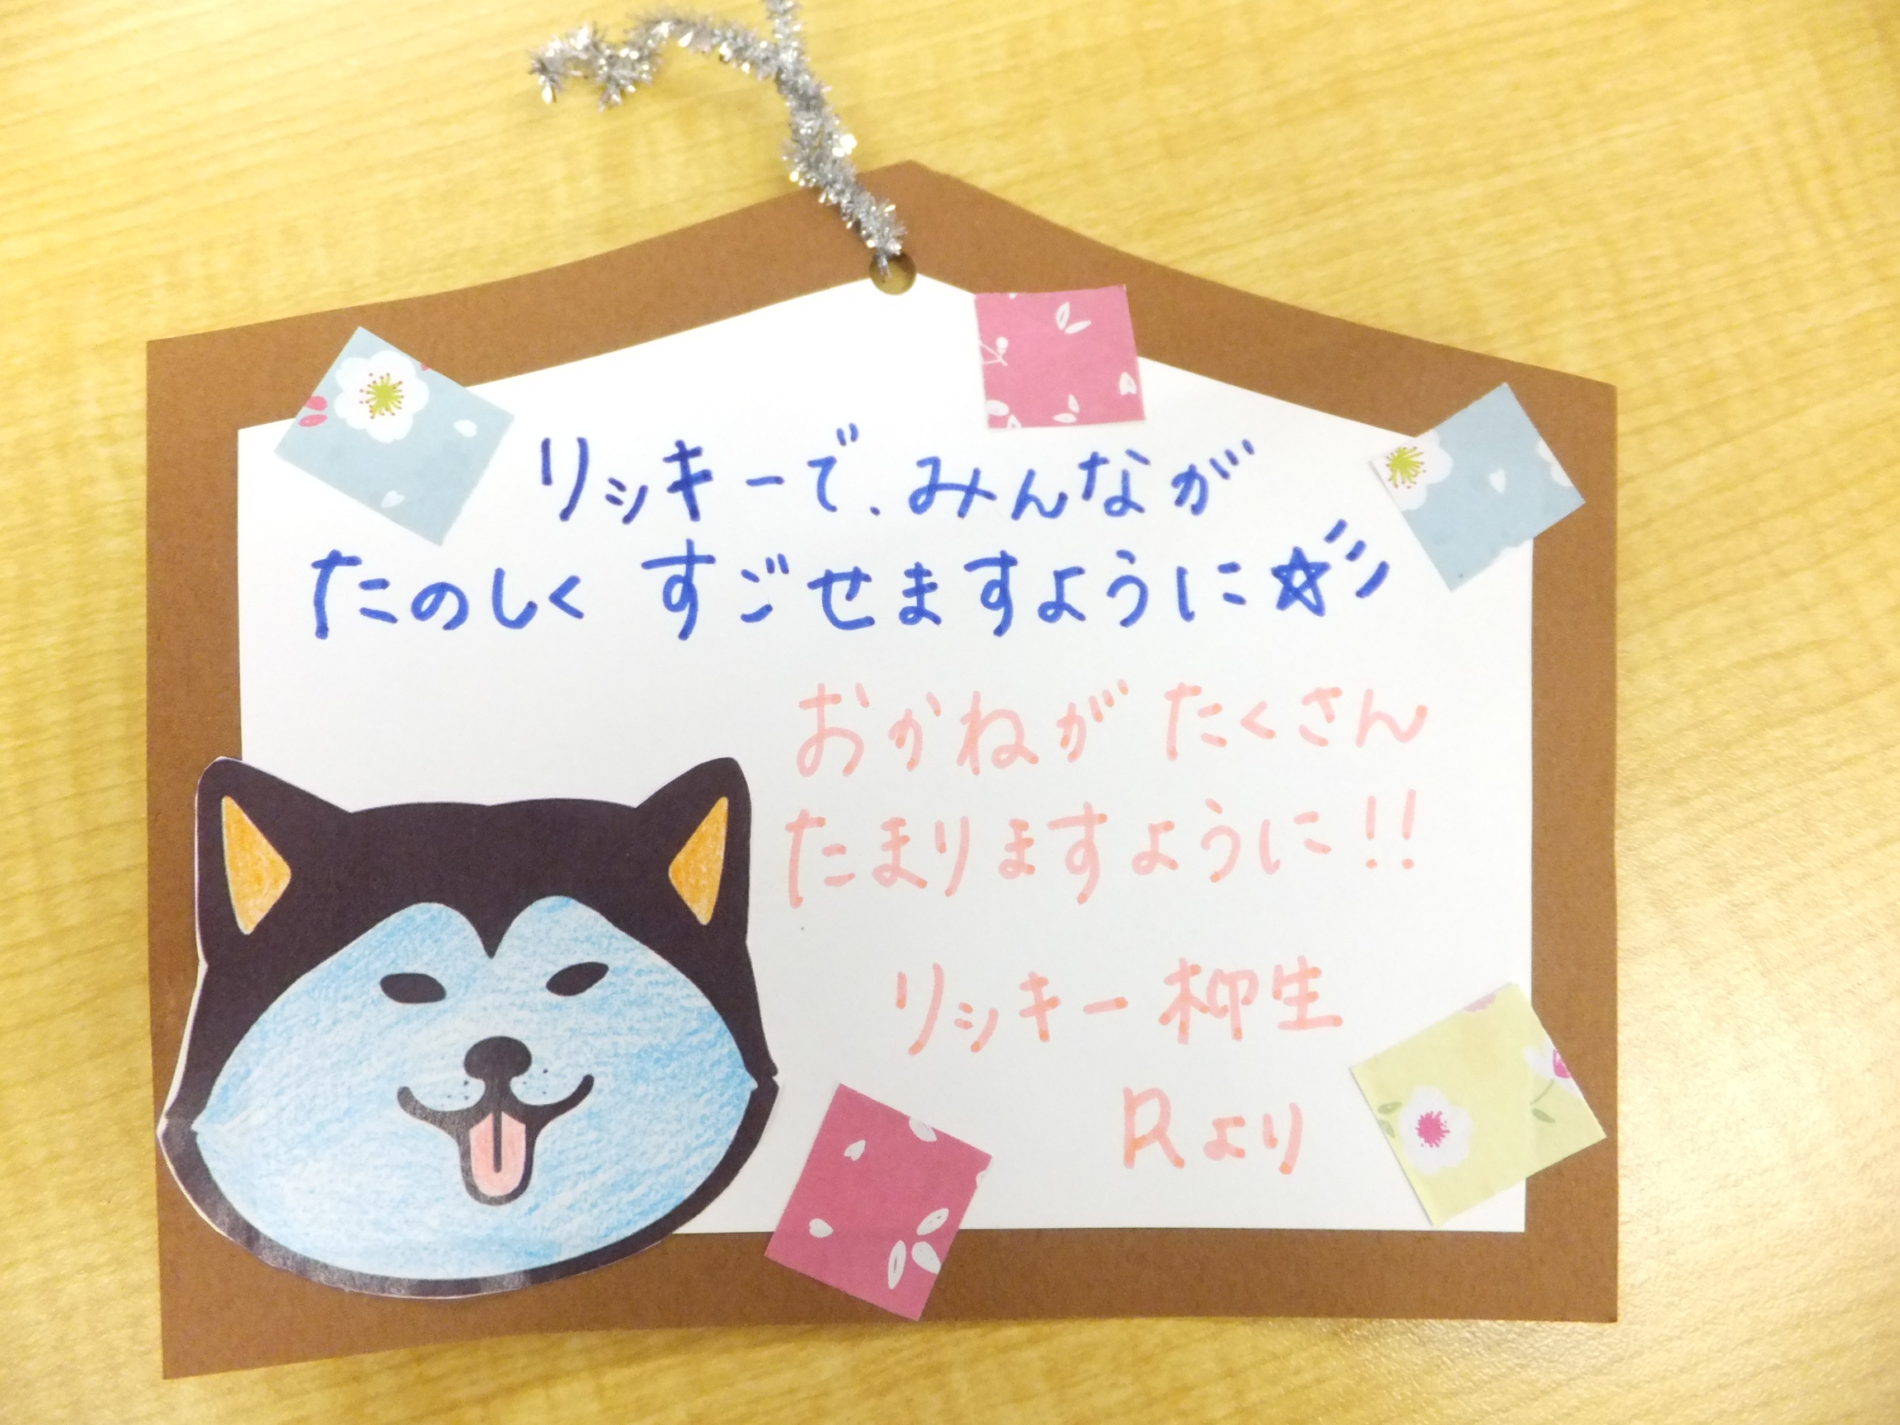 リッキーで、みんなが
たのしく すごせますように☆
おかねが たくさん
たまりますように!!
リッキー柳生
Rより